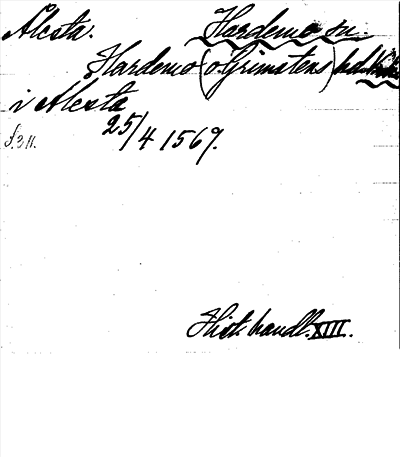 Ålsta. Hardemo sn.
Hardemo (o. Grimstens) hd
i Alesta
25/4 1569.
Hist. handl. XIII.